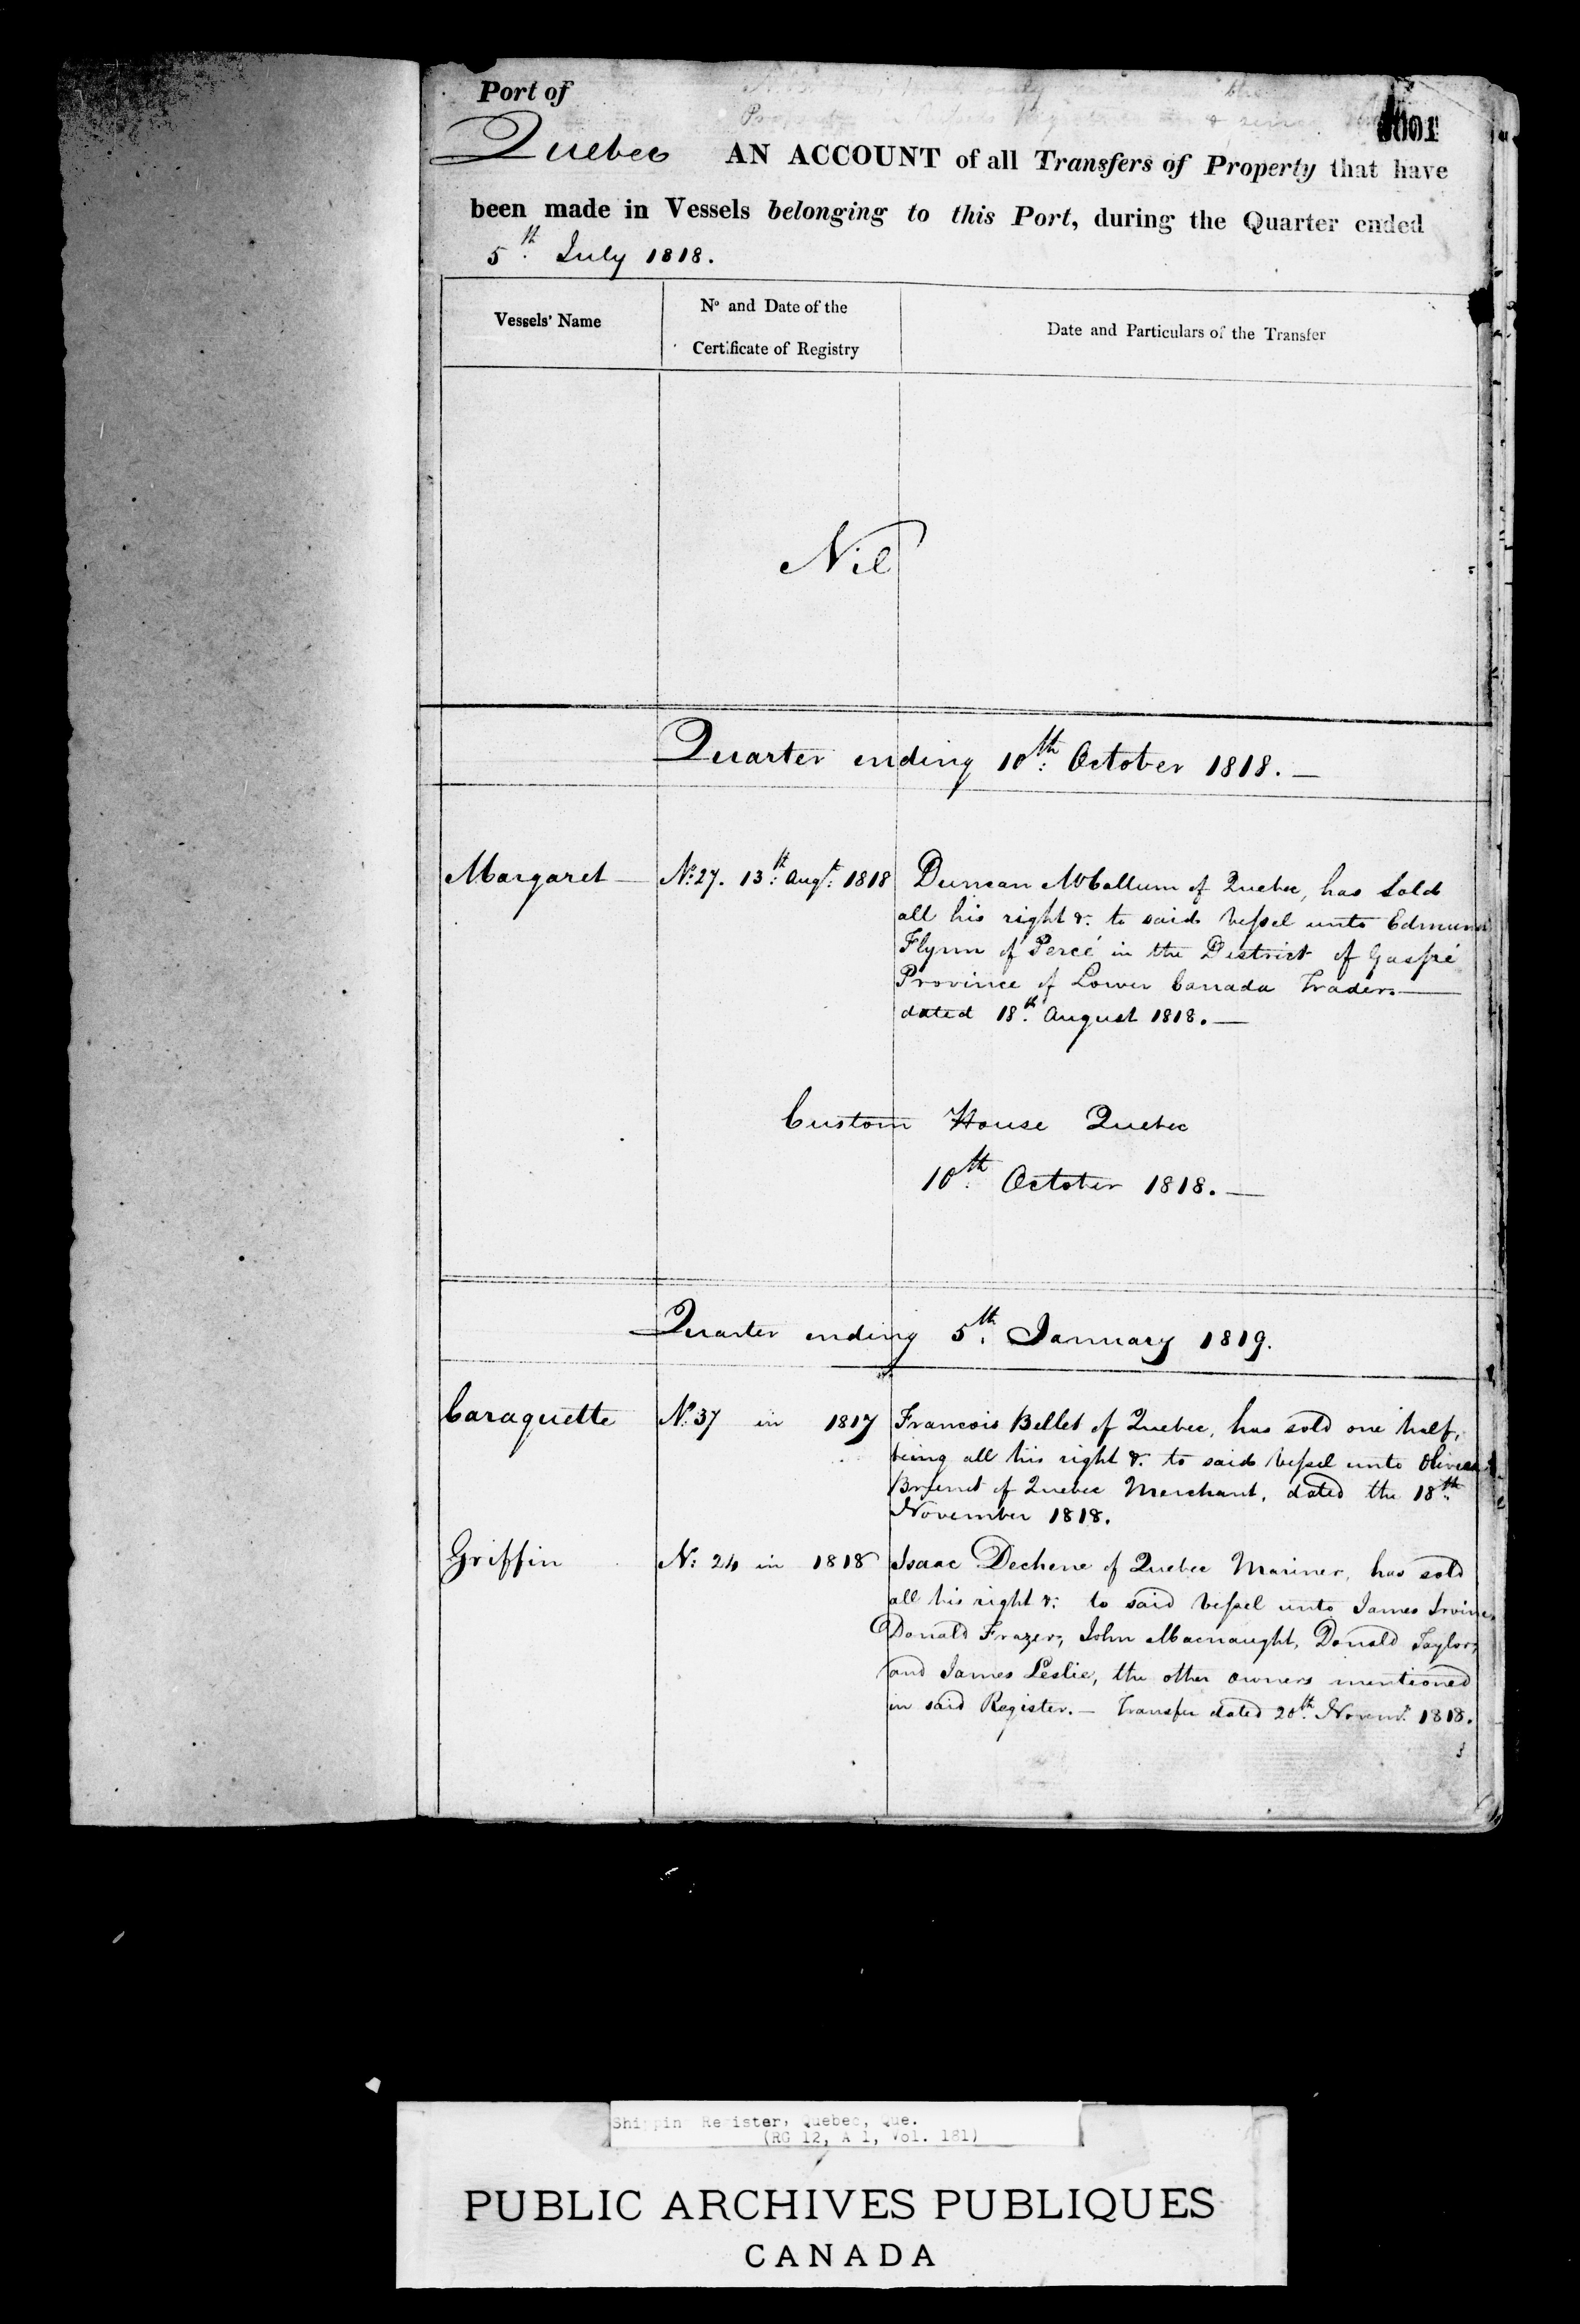 Port of
0001
Quebec AN ACCOUNT of all Transfers of Property that have
been made in Vessels belonging to this Port, during the Quarter ended
5th. July 1818.
Vessels' Name
No and Date of the
Certificate of Registry
Date and Particulars of the Transfer
Nil
Quarter ending 10th: October 1818. —
Margaret — No: 27. 13th: Augt: 1818 Duncan McCallum of Quebec, has Sold
all his right &. to said Vessel unto Edmund
Flynn of Percé in the District of Gaspé
Province of Lower Canada Trader. —
dated 18th. August 1818. —
Custom House Quebec
10th: October 1818. —
Quarter ending 5th. January 1819.
Caraquette No: 37 in 1817 Francois Bellet of Quebec, has sold one half,
being all his right &. to said Vessel unto
of Quebec Merchant, dated the 18th:
November 1818.
Griffin No: 24 in 1818 Isaac Dechene of Quebec Mariner, has sold
all his right &: to said Vessel unto James Irvine,
Donald Frazer, John Macnaught, Donald Taylor,
and James Leslie, the other owners mentioned
in said Register. — Transfer dated 20th. Novemr. 1818.
Shipping Register, Quebec, Que.
(RG 12, A 1, Vol. 181)
PUBLIC ARCHIVES PUBLIQUES
CANADA